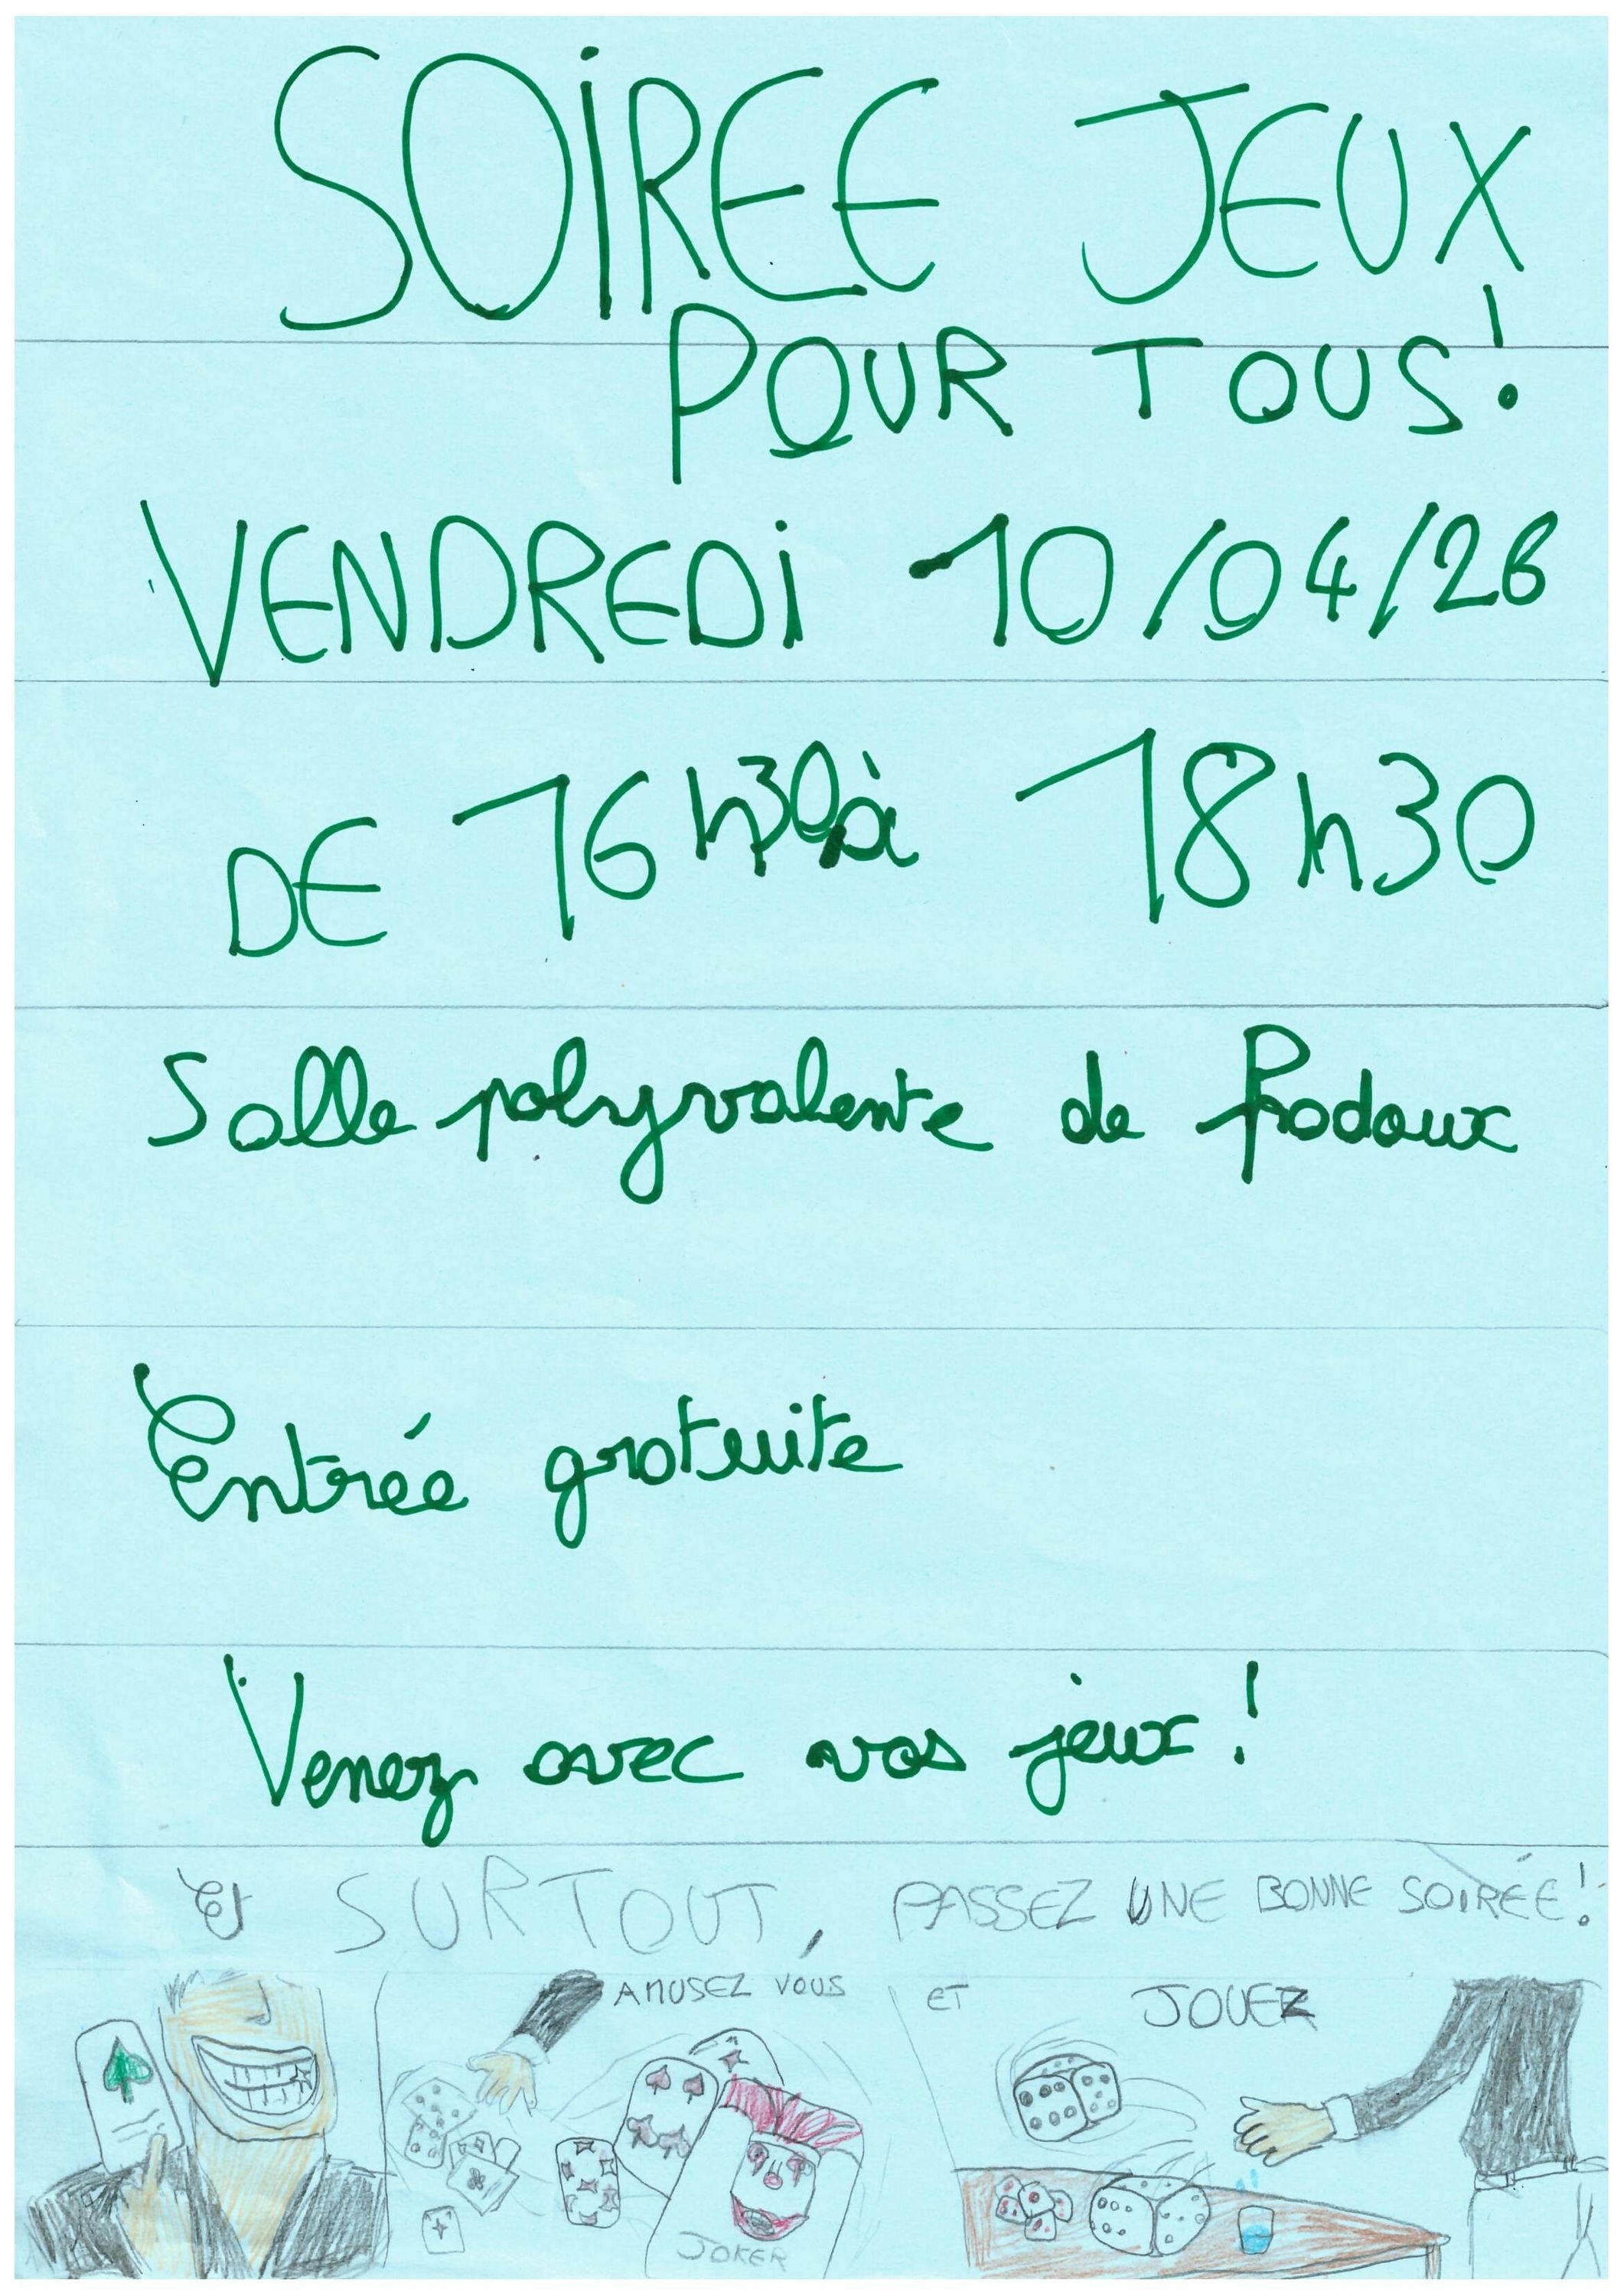 SOiREE JEUX
POUR TOUS!
VENDREDi 10/04/26
DE 16h30 à 18h30
Salle polyvalente de Prodoux
Entrée gratuite
Venez avec vos jeux!
Et SURTOUT, PASSEZ UNE BONNE SOIRÉE!
AMUSEZ VOUS ET JOUEZ
JOKER